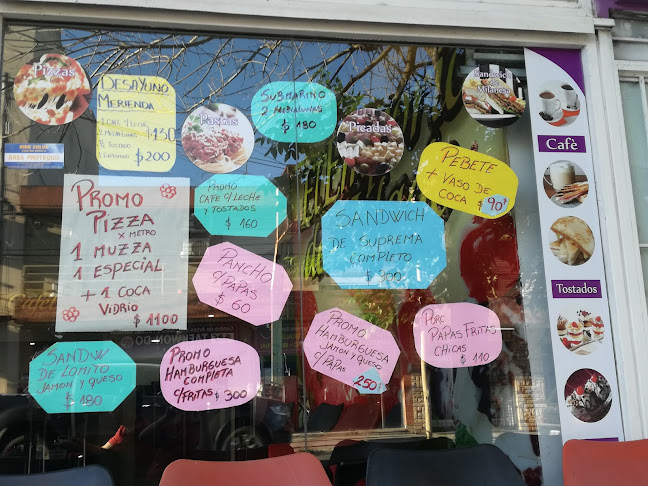 Pizzas
DESAYUNO
MERIENDA
1 CAFE C/ LECHE
2 MEDIALUNAS $130
½ TOSTADO
1 EXPRIMIDO $200
AREA PROTEGIDA
Pastas
SUBMARINO
2 MEDIALUNAS
$ 180
Picadas
Sandwich
de
Milanesa
PEBETE
+ VASO DE
COCA $ 90
Cafè
Tostados
PROMO
PIZZA
X METRO
1 MUZZA
1 ESPECIAL
+ 1 COCA
VIDRIO
$ 1100
PROMO
CAFE C/ LECHE
Y TOSTADOS
$ 160
SANDWICH
DE SUPREMA
COMPLETO
$ 300
PANCHO
C/ PAPAS
$ 60
PROMO
HAMBURGUESA
JAMON Y QUESO
C/ PAPAS
250
PORC.
PAPAS FRITAS
CHICAS
$ 110
SANDW
DE LOMITO
JAMON Y QUESO
$ 180
PROMO
HAMBURGUESA
COMPLETA
C/FRITAS
$ 300